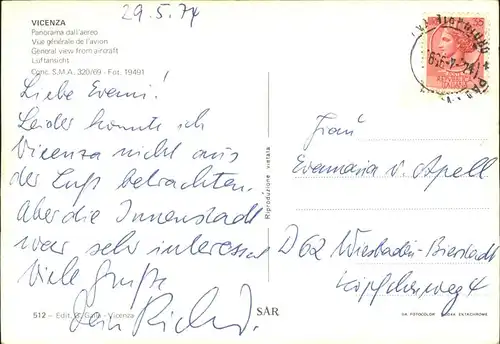 29.5.74
VICENZA
Panorama dall'aereo
Vue générale de l'avion
General view from aircraft
Luftansicht
Conc. S.M.A. 320/69 - Fot. 19491
Liebe Evemi!
Leider konnte ich
Vicenza nicht aus
der Luft betrachten.
Aber die Innenstadt
war sehr interessant
Viele Grüße
Dein Richard.
512 - Edit. G. Galla - Vicenza
SAR
Riproduzione vietata
Frau
Evamaria v. Apell
D 62 Wiesbaden-Bierstadt
Köpfchenweg 4
GA FOTOCOLOR KODAK EKTACHROME